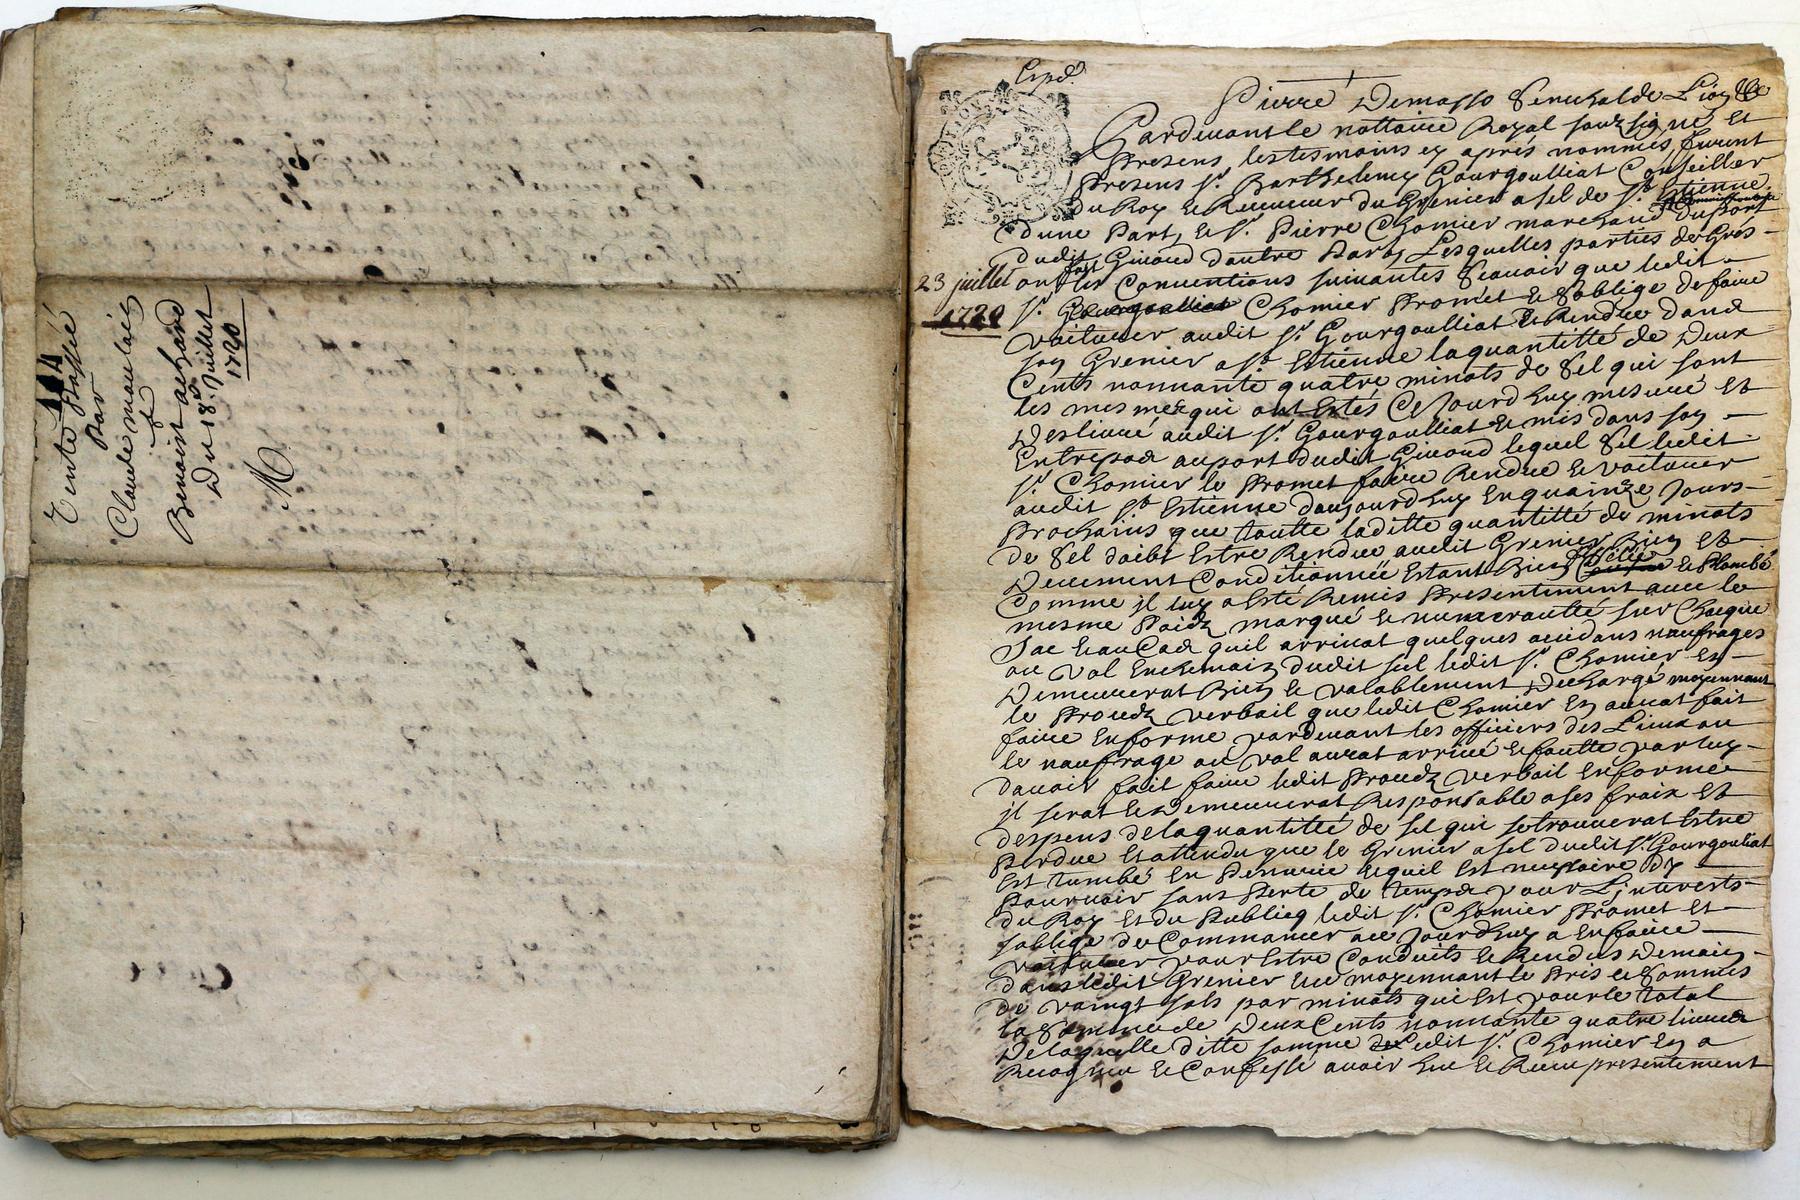 Vente Passée
Par
Claude moulaix
&
Benoist achard
Du 18e. Juillet
1720
M
Exped.
Pierre Demasso Senechal de Lion &c
Pardevant le nottaire Royal soubsigné et
Presens, les tesmoins ey aprés nommés furent
Presens sr. Barthelemy Gourgoulliat Conseiller
du Roy & Receveur du Grenier a sel de st. Estienne
dune Part, & sr. Pierre Chomier marchand du Port
dudit Givord dautre Part, Lesquelles parties de Gres –
ont fait les Conventions suivantes Scavoir que ledit –
23 juillet
1720
sr. Gourgoulliat Chomier Promet & Soblige de faire
voiturer audit sr. Gourgoulliat & Rendre dans
son Grenier a st. Estienne la quantitté de Deux
Cents nonnante quatre minots de Sel qui sont
les mesmes qui ont Estés Ce Jourdhuy mesuré et
Deslivré audit sr. Gourgoulliat & mis dans son –
Entrepos au port dudit Givord lequel Sel ledit
sr. Chomier le Promet faire Rendre & voiturer
audit st. Estienne daujourdhuy En quainze Jours –
Prochains que toutte laditte quantitté de minots
de Sel doibt Estre Rendue audit Grenier Bien et –
Deuement Conditionnée Estant Bien & Plombé
Comme jl luy a Esté Remis Presentement avec le
mesme Poidz marqué & numerautté sur Chaque
Sac & au Cas quil arrivat quelques accidans naufrages
ou vol En chemain dudit sel ledit sr. Chomier En –
Demeurerat Bien & valablement Dechargé moyennant
le Procedz verbail que ledit Chomier En aurat fait
faire En forme pardevant les officiers des Lieux ou
le naufrage ou vol aurat arrivé & faulte par luy –
davoir fait faire ledit Procedz verbail En forme
jl serat & Demeurerat Responsable a ses fraix et
despens de la quantitté de sel qui se trouverat Estre
Perdue Et attendu que le Grenier a sel dudit sr. Gourgoulliat
Est tumbé En Penurie & quil Est necessaire dy
Pourvoir sans Perte de temps pour L'interests –
du Roy Et du Publicq ledit sr. Chomier Promet Et –
soblige de Commancer ce Jourdhuy a En faire –
voiturer pour Estre Conduits & Rendus Demain –
dans ledit Grenier & ce moyennant le Pris & Sommes
de vaingt sols par minots qui Est pour le total
la Somme de Deux Cents nonnante quatre livres
De laquelle ditte somme ledit sr. Chomier En a
Recognu & Confessé avoir heu & Receu presentement